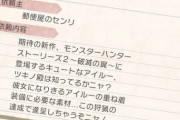 依頼主
郵便屋のセンリ
依頼内容
期待の新作、モンスターハンター
ストーリーズ2～破滅の翼～に
登場するキュートなアイルー、
ツキノ殿は知ってるかニャ？
彼女になりきるアイルーの重ね着
装備に必要な素材…この狩猟の
達成で進呈しちゃうぞニャ！